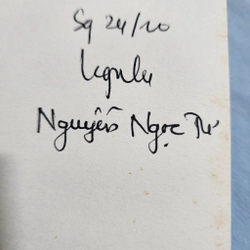 Sg 24/10
Nguyễn Ngọc Tư